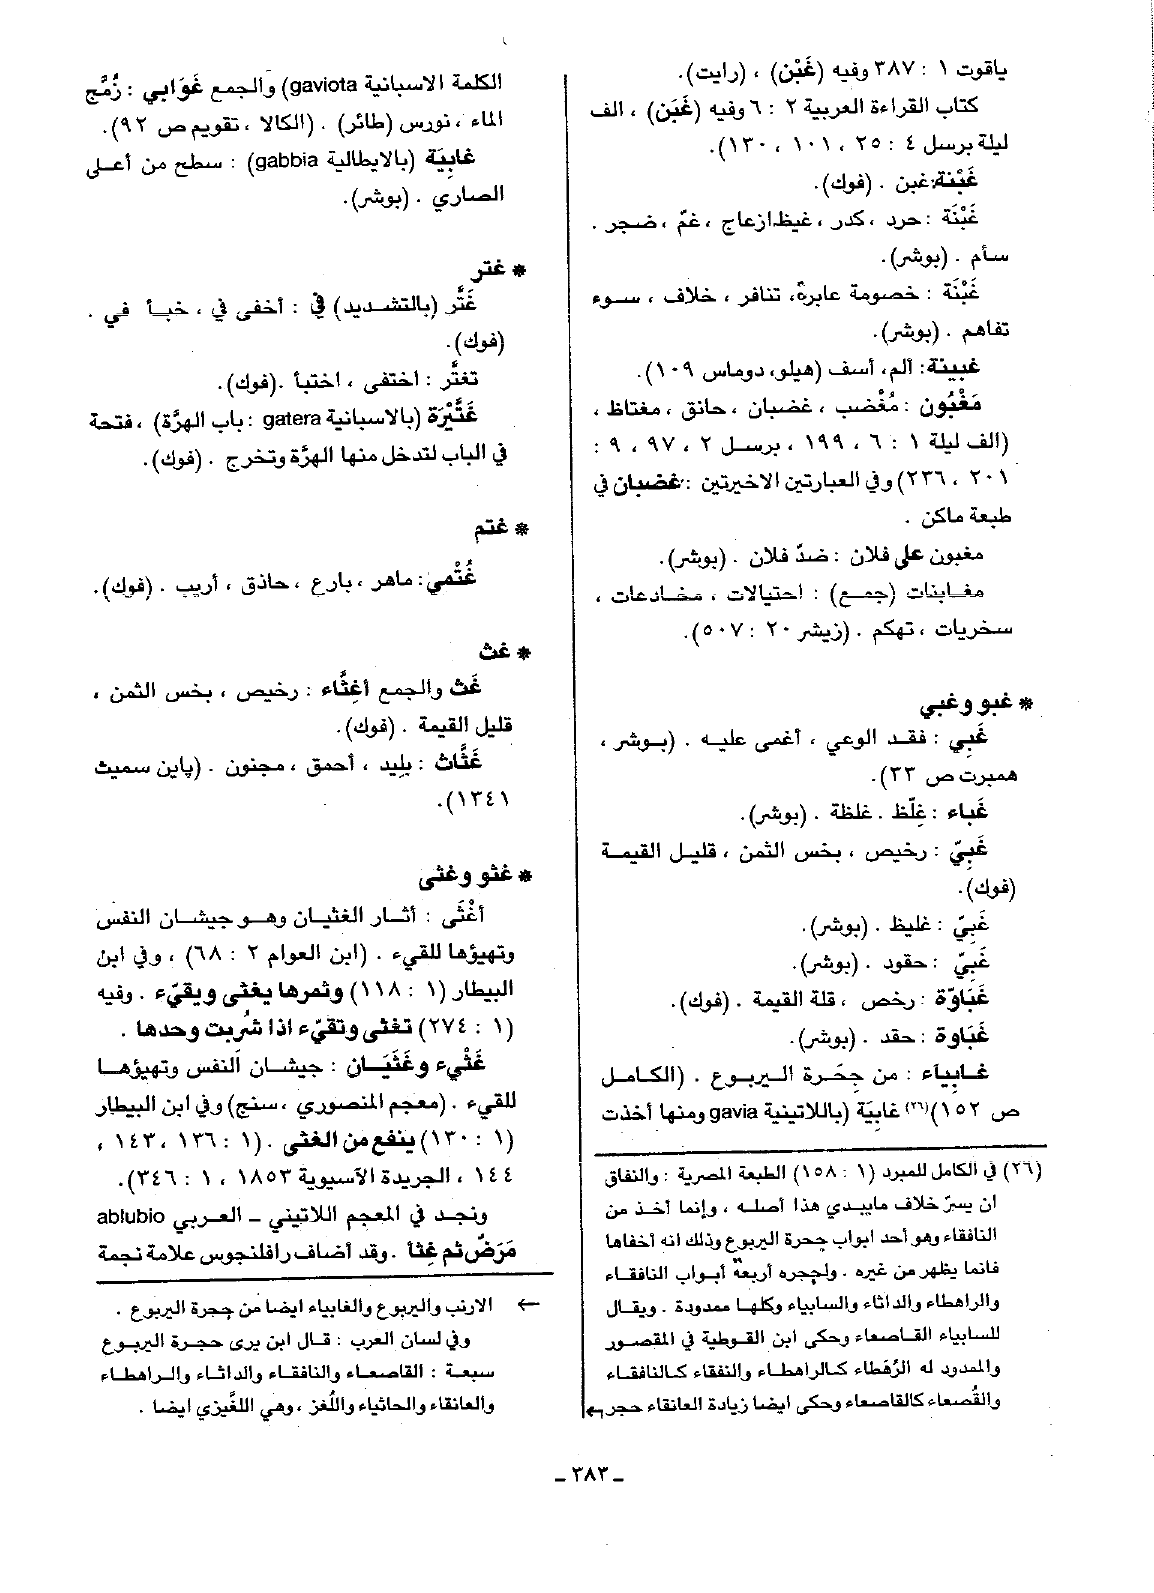 ياقوت ١ : ٣٨٧ وفيه (غَبْن) ، (رايت).
كتاب القراءة العربية ٢ : ٦ وفيه (غَبَن) ، الف
ليلة برسل ٤ : ٢٥ ، ١٠١ ، ١٣٠).
غَبْنة: غبن . (فوك).
غَبْنَة : حرد ، كدر ، غيظ. ازعاج ، غمّ ، ضجر .
سأم . (بوشر).
غَبْنَة : خصومة عابرة، تنافر ، خلاف ، سوء
تفاهم . (بوشر).
غبينة: ألم، أسف (هيلو، دوماس ١٠٩).
مَغْبُون : مُغْضب ، غضبان ، حانق ، مغتاظ ،
(الف ليلة ١ : ٦ ، ١٩٩ ، برسل ٢ ، ٩٧ ، ٩ :
٢٠١ ، ٢٣٦) وفي العبارتين الاخيرتين : غضبان في
طبعة ماكن .
مغبون على فلان : ضدّ فلان . (بوشر).
مغابنات (جمع) : احتيالات ، مخادعات ،
سخريات ، تهكم . (زيشر ٢٠ : ٥٠٧).
* غبو وغبي
غَبِي : فقد الوعي ، أغمى عليه . (بوشر ،
همبرت ص ٣٣).
غَباء : غِلّظ . غلظة . (بوشر).
غَبِيّ : رخيص ، بخس الثمن ، قليل القيمة
(فوك).
غَبِيّ : غليظ . (بوشر).
غَبِيّ : حقود . (بوشر).
غَبَاوَة : رخص ، قلة القيمة . (فوك).
غَبَاوة : حقد . (بوشر).
غابياء : من جِحَرة اليربوع . (الكامل
ص ١٥٢)(٢٦) غابِيَة (باللاتينية gavia ومنها أخذت
(٢٦) في الكامل للمبرد (١ : ١٥٨) الطبعة المصرية : والنفاق
ان يسرّ خلاف مايبدي هذا أصله ، وإنما أخذ من
النافقاء وهو أحد ابواب جحرة اليربوع وذلك انه أخفاها
فانما يظهر من غيره . ولجحره أربعة أبواب النافقاء
والراهطاء والداثاء والسابياء وكلها ممدودة . ويقال
للسابياء القاصعاء وحكى ابن القوطية في المقصور
والممدود له الرُهَطاء كالراهطاء والنفقاء كالنافقاء
والقُصعاء كالقاصعاء وحكى ايضا زيادة العانقاء حجر ←
الكلمة الاسبانية gaviota) والجمع غَوَابي : زُمَّج
الماء ، نورس (طائر) . (الكالا ، تقويم ص ٩٢).
غابِيَة (بالايطالية gabbia) : سطح من أعلى
الصاري . (بوشر).
* غتر
غَتَّر (بالتشديد) في : أخفى في ، خبأ في .
(فوك).
تغتَّر : اختفى ، اختبأ . (فوك).
غَتَّيْرَة (بالاسبانية gatera : باب الهرَّة) ، فتحة
في الباب لتدخل منها الهرَّة وتخرج . (فوك).
* غتم
غُتْمي: ماهر ، بارع ، حاذق ، أريب . (فوك).
* غث
غَث والجمع أغِثَّاء : رخيص ، بخس الثمن ،
قليل القيمة . (فوك).
غَثَّاث : بليد ، أحمق ، مجنون . (پاين سميث
١٣٤١).
* غثو وغثى
أغْثَى : أثار الغثيان وهو جيشان النفس
وتهيؤها للقيء . (ابن العوام ٢ : ٦٨) ، وفي ابن
البيطار (١ : ١١٨) وثمرها يغثى ويقيّء . وفيه
(١ : ٢٧٤) تغثى وتقيّء اذا شُربت وحدها .
غَثْيء وغَثَيَان : جيشان النفس وتهيؤها
للقيء . (معجم المنصوري ، سنج) وفي ابن البيطار
(١ : ١٣٠) ينفع من الغثى . (١ : ١٣٦ ، ١٤٣ ،
١٤٤ ، الجريدة الآسيوية ١٨٥٣ ، ١ : ٣٤٦).
ونجد في المعجم اللاتيني ـ العربي ablubio
مَرَضٌ ثم غِثأ . وقد أضاف رافلنجوس علامة نجمة
← الارنب واليربوع والغابياء ايضا من جحرة اليربوع .
وفي لسان العرب : قال ابن بري حجرة اليربوع
سبعة : القاصعاء والنافقاء والداثاء والراهطاء
والعانقاء والحاثياء واللُغز ، وهي اللغَّيزي ايضا .
ـ ٣٨٣ ـ